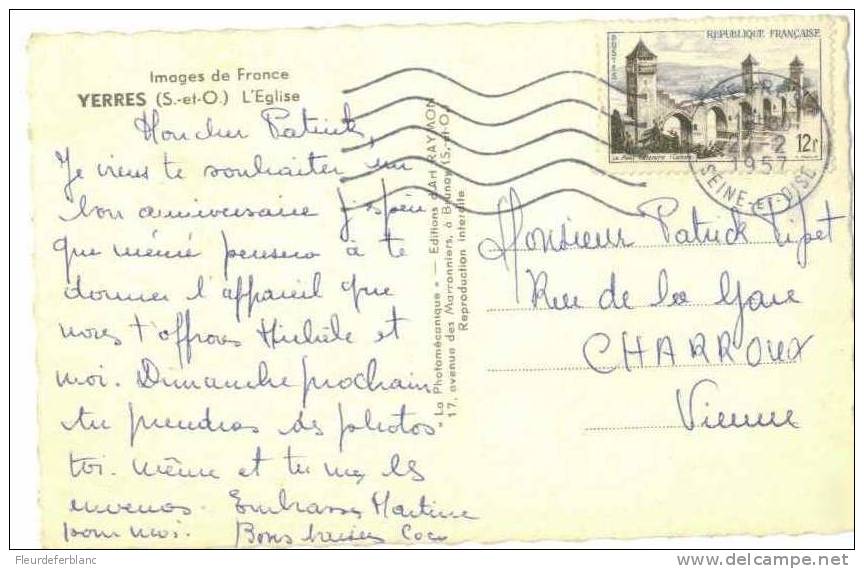 Images de France
YERRES (S.-et-O.) L'Eglise
Mon cher Patrick,
Je viens te souhaiter un
bon anniversaire j'espère
que mémé pensera à te
donner l'appareil que
nous t'offrons Michèle et
moi. Dimanche prochain
tu prendras des photos
toi-même et tu nous les
enverras. Embrasse Martine
pour moi. Bons baisers Coco
"La Photomécanique" — Editions d'Art RAYMON
17, avenue des Marronniers, à Brunoy (S.-et-O.)
Reproduction interdite
REPUBLIQUE FRANÇAISE
POSTES
12F
-2
1957
SEINE-ET-OISE
Monsieur Patrick Pipet
Rue de la Gare
CHARROUX
Vienne
Fleurdeferblanc
delcampe.net